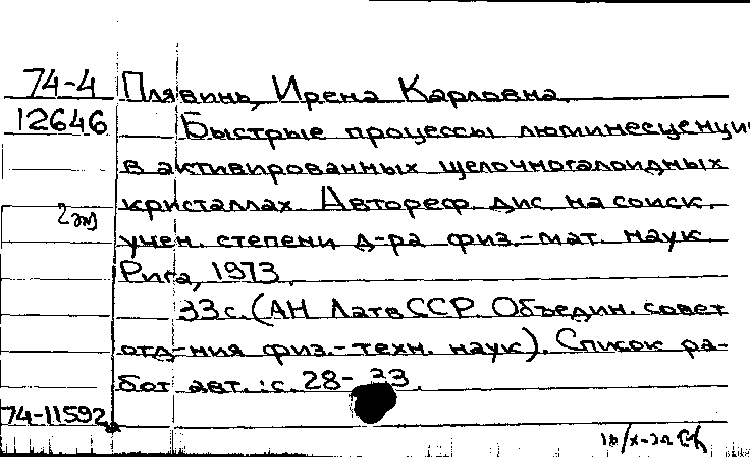 74-4 Плявинь, Ирена Карловна.
12646 Быстрые процессы люминесценции
в активированных щелочногалоидных
кристаллах. Автореф. дис. на соиск.
2 эк
учен. степени д-ра физ.-мат. наук.
Рига, 1973.
33 с. (АН Латв ССР. Объедин. совет
отд-ния физ.-техн. наук). Список ра-
бот авт.: с. 28-33.
74-11592